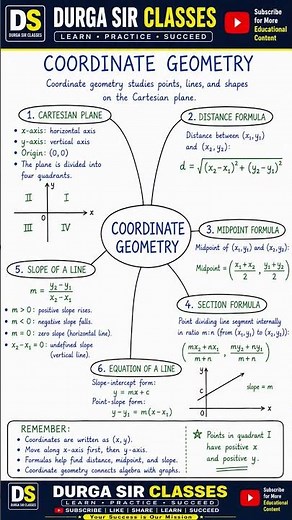 DS
DURGA SIR CLASSES
DURGA SIR CLASSES
LEARN • PRACTICE • SUCCEED
Subscribe
for More
Educational
Content
COORDINATE GEOMETRY
Coordinate geometry studies points, lines, and shapes
on the Cartesian plane.
1. CARTESIAN PLANE
• x-axis: horizontal axis
• y-axis: vertical axis
• Origin: (0,0)
• The plane is divided into
four quadrants.
y
II I
0 x
III IV
2. DISTANCE FORMULA
Distance between (x₁,y₁)
and (x₂,y₂):
d = √(x₂-x₁)² + (y₂-y₁)²
COORDINATE
GEOMETRY
3. MIDPOINT FORMULA
Midpoint of (x₁,y₁) and (x₂,y₂):
Midpoint = (x₁+x₂/2, y₁+y₂/2)
4. SECTION FORMULA
Point dividing line segment internally
in ratio m:n (from (x₁,y₁) to (x₂,y₂)):
(mx₂+nx₁/m+n, my₂+ny₁/m+n)
y
c
slope = m
x
5. SLOPE OF A LINE
m = y₂-y₁/x₂-x₁
• m > 0: positive slope rises.
• m < 0: negative slope falls.
• m = 0: zero slope (horizontal line).
• x₂-x₁ = 0: undefined slope
(vertical line).
6. EQUATION OF A LINE
Slope-intercept form:
y = mx+c
Point-slope form:
y-y₁ = m(x-x₁)
REMEMBER:
• Coordinates are written as (x, y).
• Move along x-axis first, then y-axis.
• Formulas help find distance, midpoint, and slope.
• Coordinate geometry connects algebra with graphs.
☆ Points in quadrant I
have positive x
and positive y.
DS
DURGA SIR CLASSES
DURGA SIR CLASSES
LEARN • PRACTICE • SUCCEED
SUBSCRIBE | LIKE | SHARE | LEARN | GROW
Your Success is Our Mission
Subscribe
for More
Educational
Content